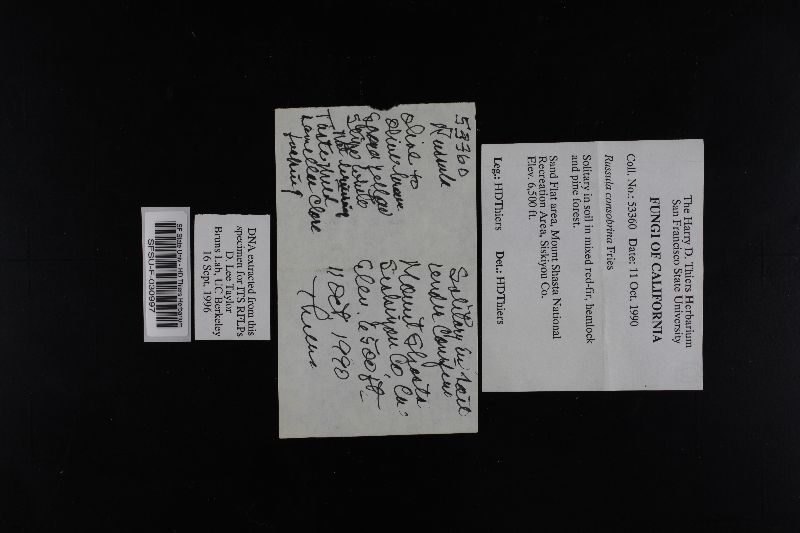 The Harry D. Thiers Herbarium
San Francisco State University
FUNGI OF CALIFORNIA
Coll. No.: 53360 Date: 11 Oct. 1990
Russula consobrina Fries
Solitary in soil in mixed red-fir, hemlock
and pine forest.
Sand Flat area, Mount Shasta National
Recreation Area, Siskiyou Co.
Elev. 6,500 ft.
Leg.: HDThiers Det.: HDThiers
53360
Russula
Olive to
olive brown
Spores yellow
Stipe white
Not turning
Taste mild
Lamellae close
Solitary in soil
under conifers
Mount Shasta
Siskiyou Co, Ca.
Elev. 6500 ft
11 Oct 1990
Thiers
DNA extracted from this
specimen for ITS RFLPs
D. Lee Taylor
Bruns Lab, UC Berkeley
16 Sept. 1996
SF State Univ - HD Thiers Herbarium
SFSU-F-030997